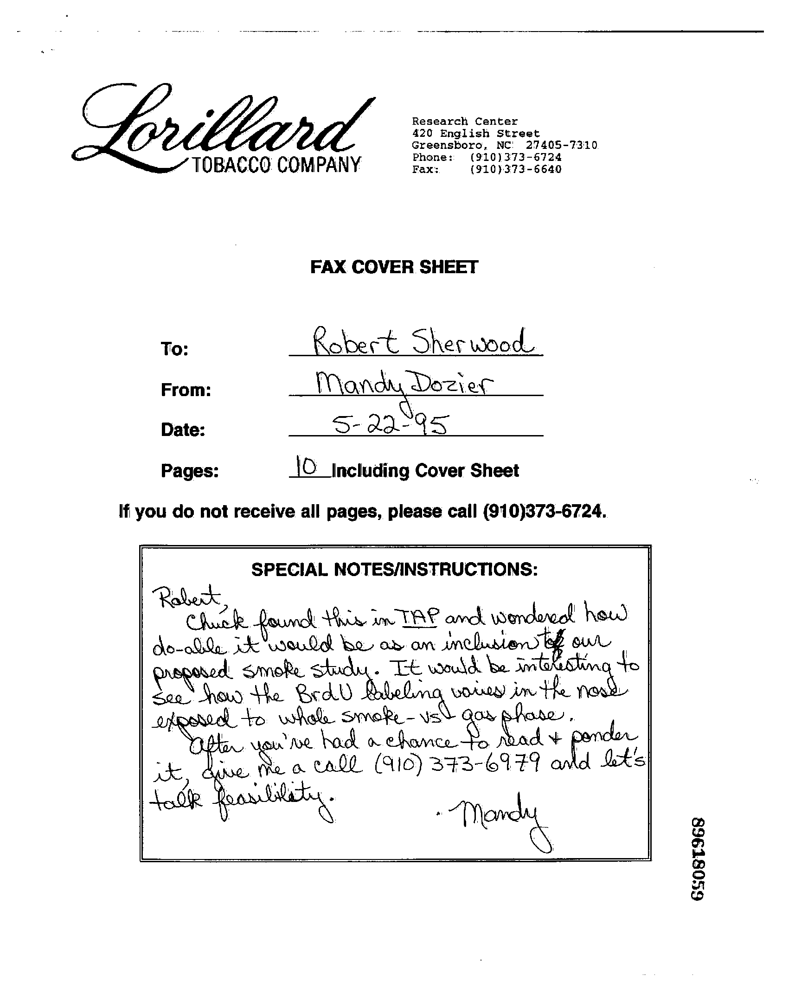 Lorillard
TOBACCO COMPANY
Research Center
420 English Street
Greensboro, NC 27405-7310
Phone: (910)373-6724
Fax: (910)373-6640
FAX COVER SHEET
To: Robert Sherwood
From: Mandy Dozier
Date: 5-22-95
Pages: 10 Including Cover Sheet
If you do not receive all pages, please call (910)373-6724.
SPECIAL NOTES/INSTRUCTIONS:
Robert,
Chuck found this in TAP and wondered how
do-able it would be as an inclusion to our
proposed smoke study. It would be interesting to
see how the BrdU labeling varies in the nose
exposed to whole smoke -vs- gas phase.
After you've had a chance to read + ponder
it, give me a call (910) 373-6979 and let's
talk feasibility.
Mandy
89618059